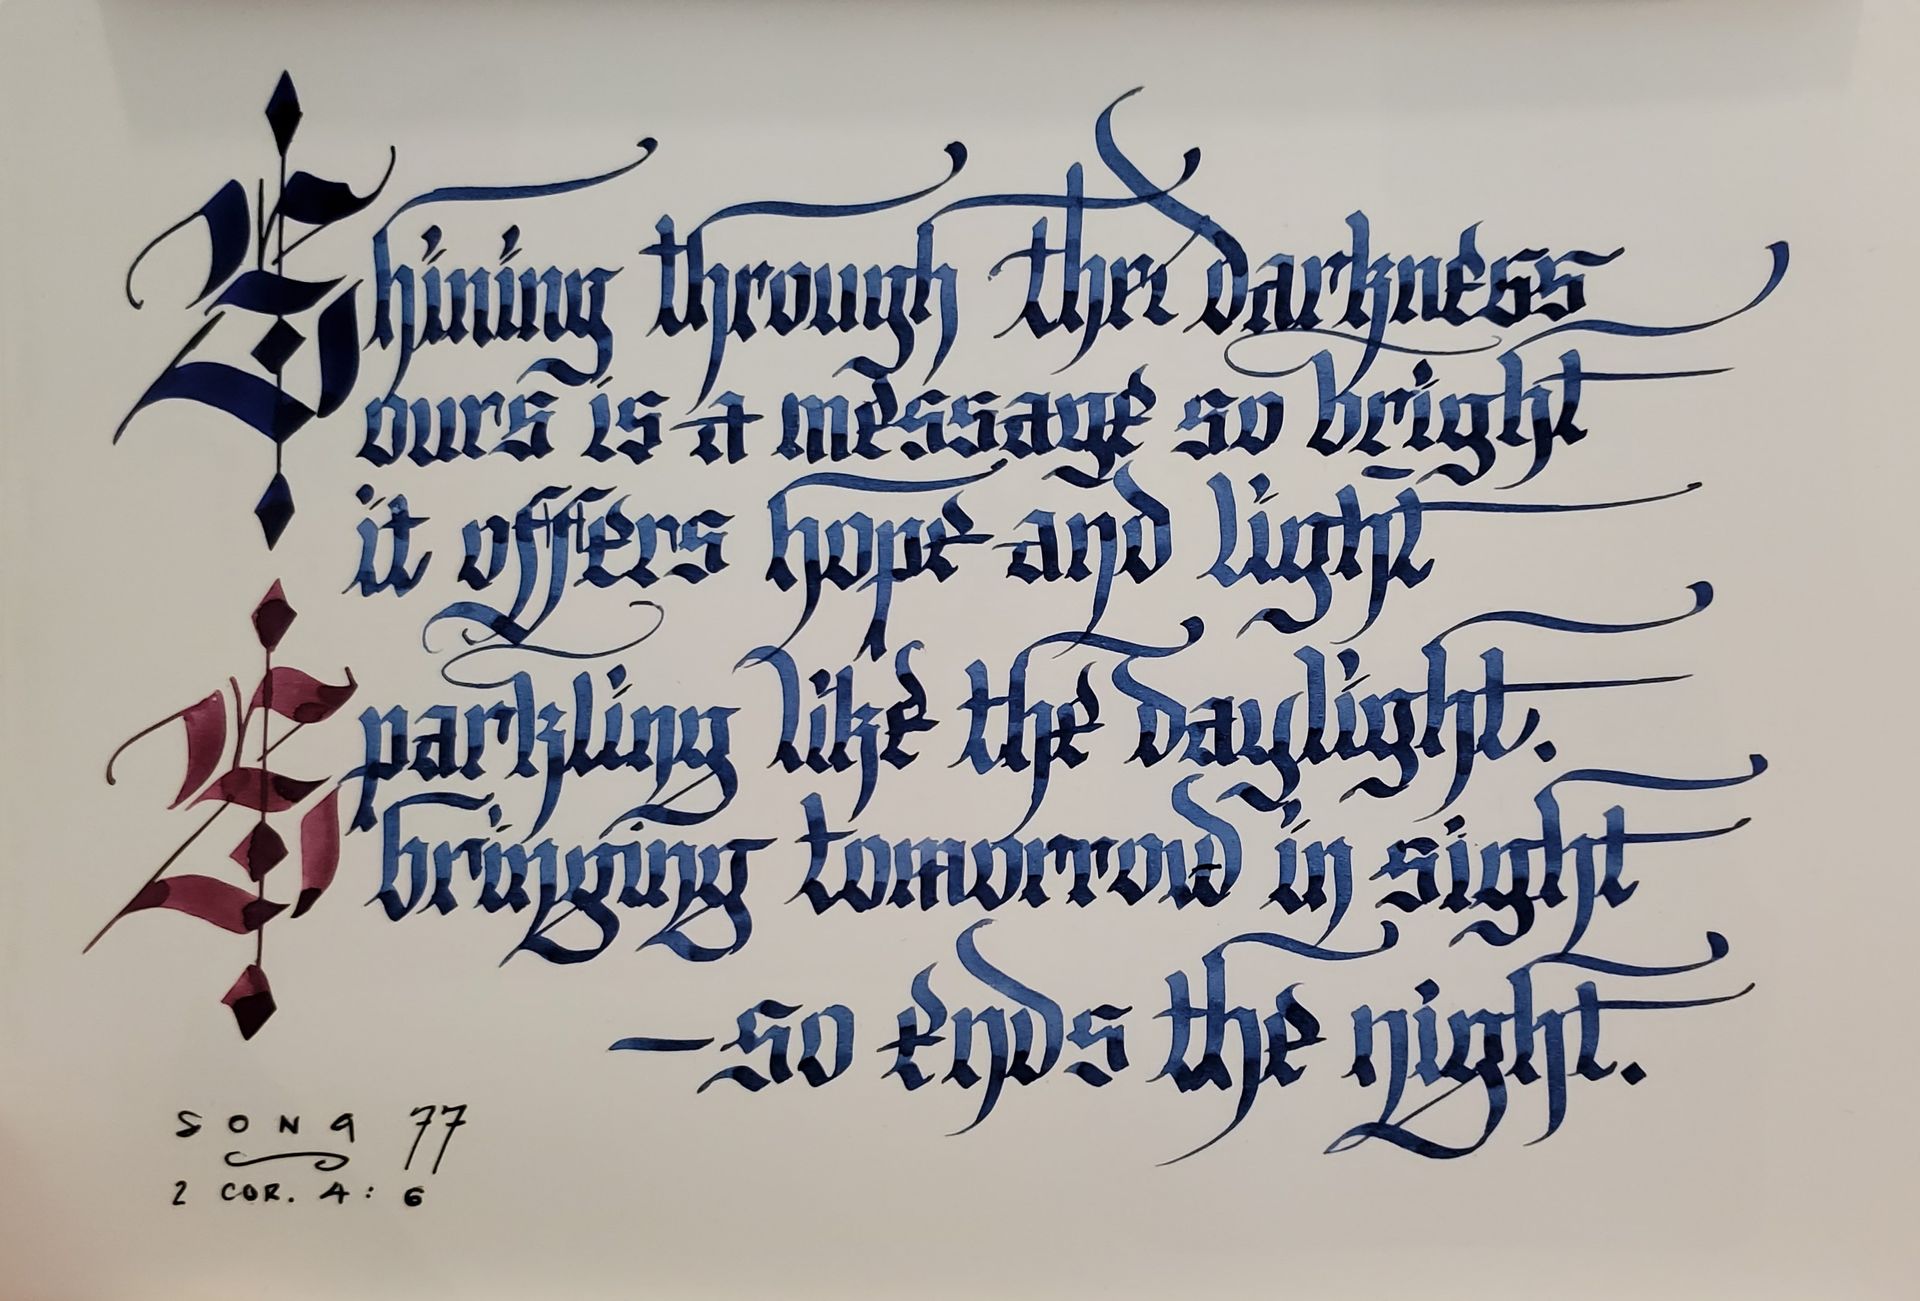 Shining through the darkness
ours is a message so bright
it offers hope and light
Sparkling like the daylight.
bringing tomorrow in sight
—so ends the night.
SONG 77
2 COR. 4:6